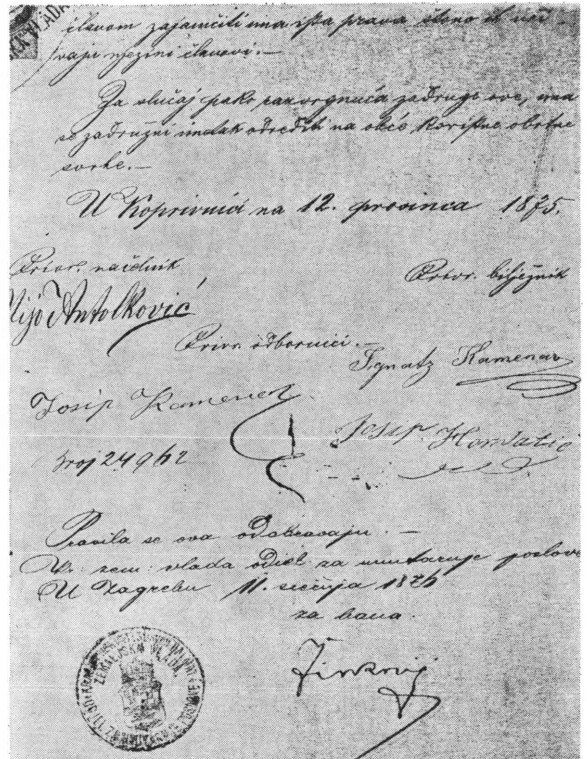 članom zajamčiti ima ista prava
članovi.—
Za slučaj pako razvrgnuća zadruge ove, ima
se zadružni imetak odrediti na obće koristne obrtne
svrhe.—
U Koprivnici na 12. prosinca 1875.
Privr. načelnik
Privr. bilježnik
Mijo Antolković
Privr. odbornici.—
Ignatz Kamenar
Josip Kamenar
Josip Horvatić
Broj 24962
Pravila se ova odobravaju.—
Kr. zem. vlada Odiel za unutarnje poslove
U Zagrebu 11. siečnja 1876
za bana.
ZEMALJSKA VLADA